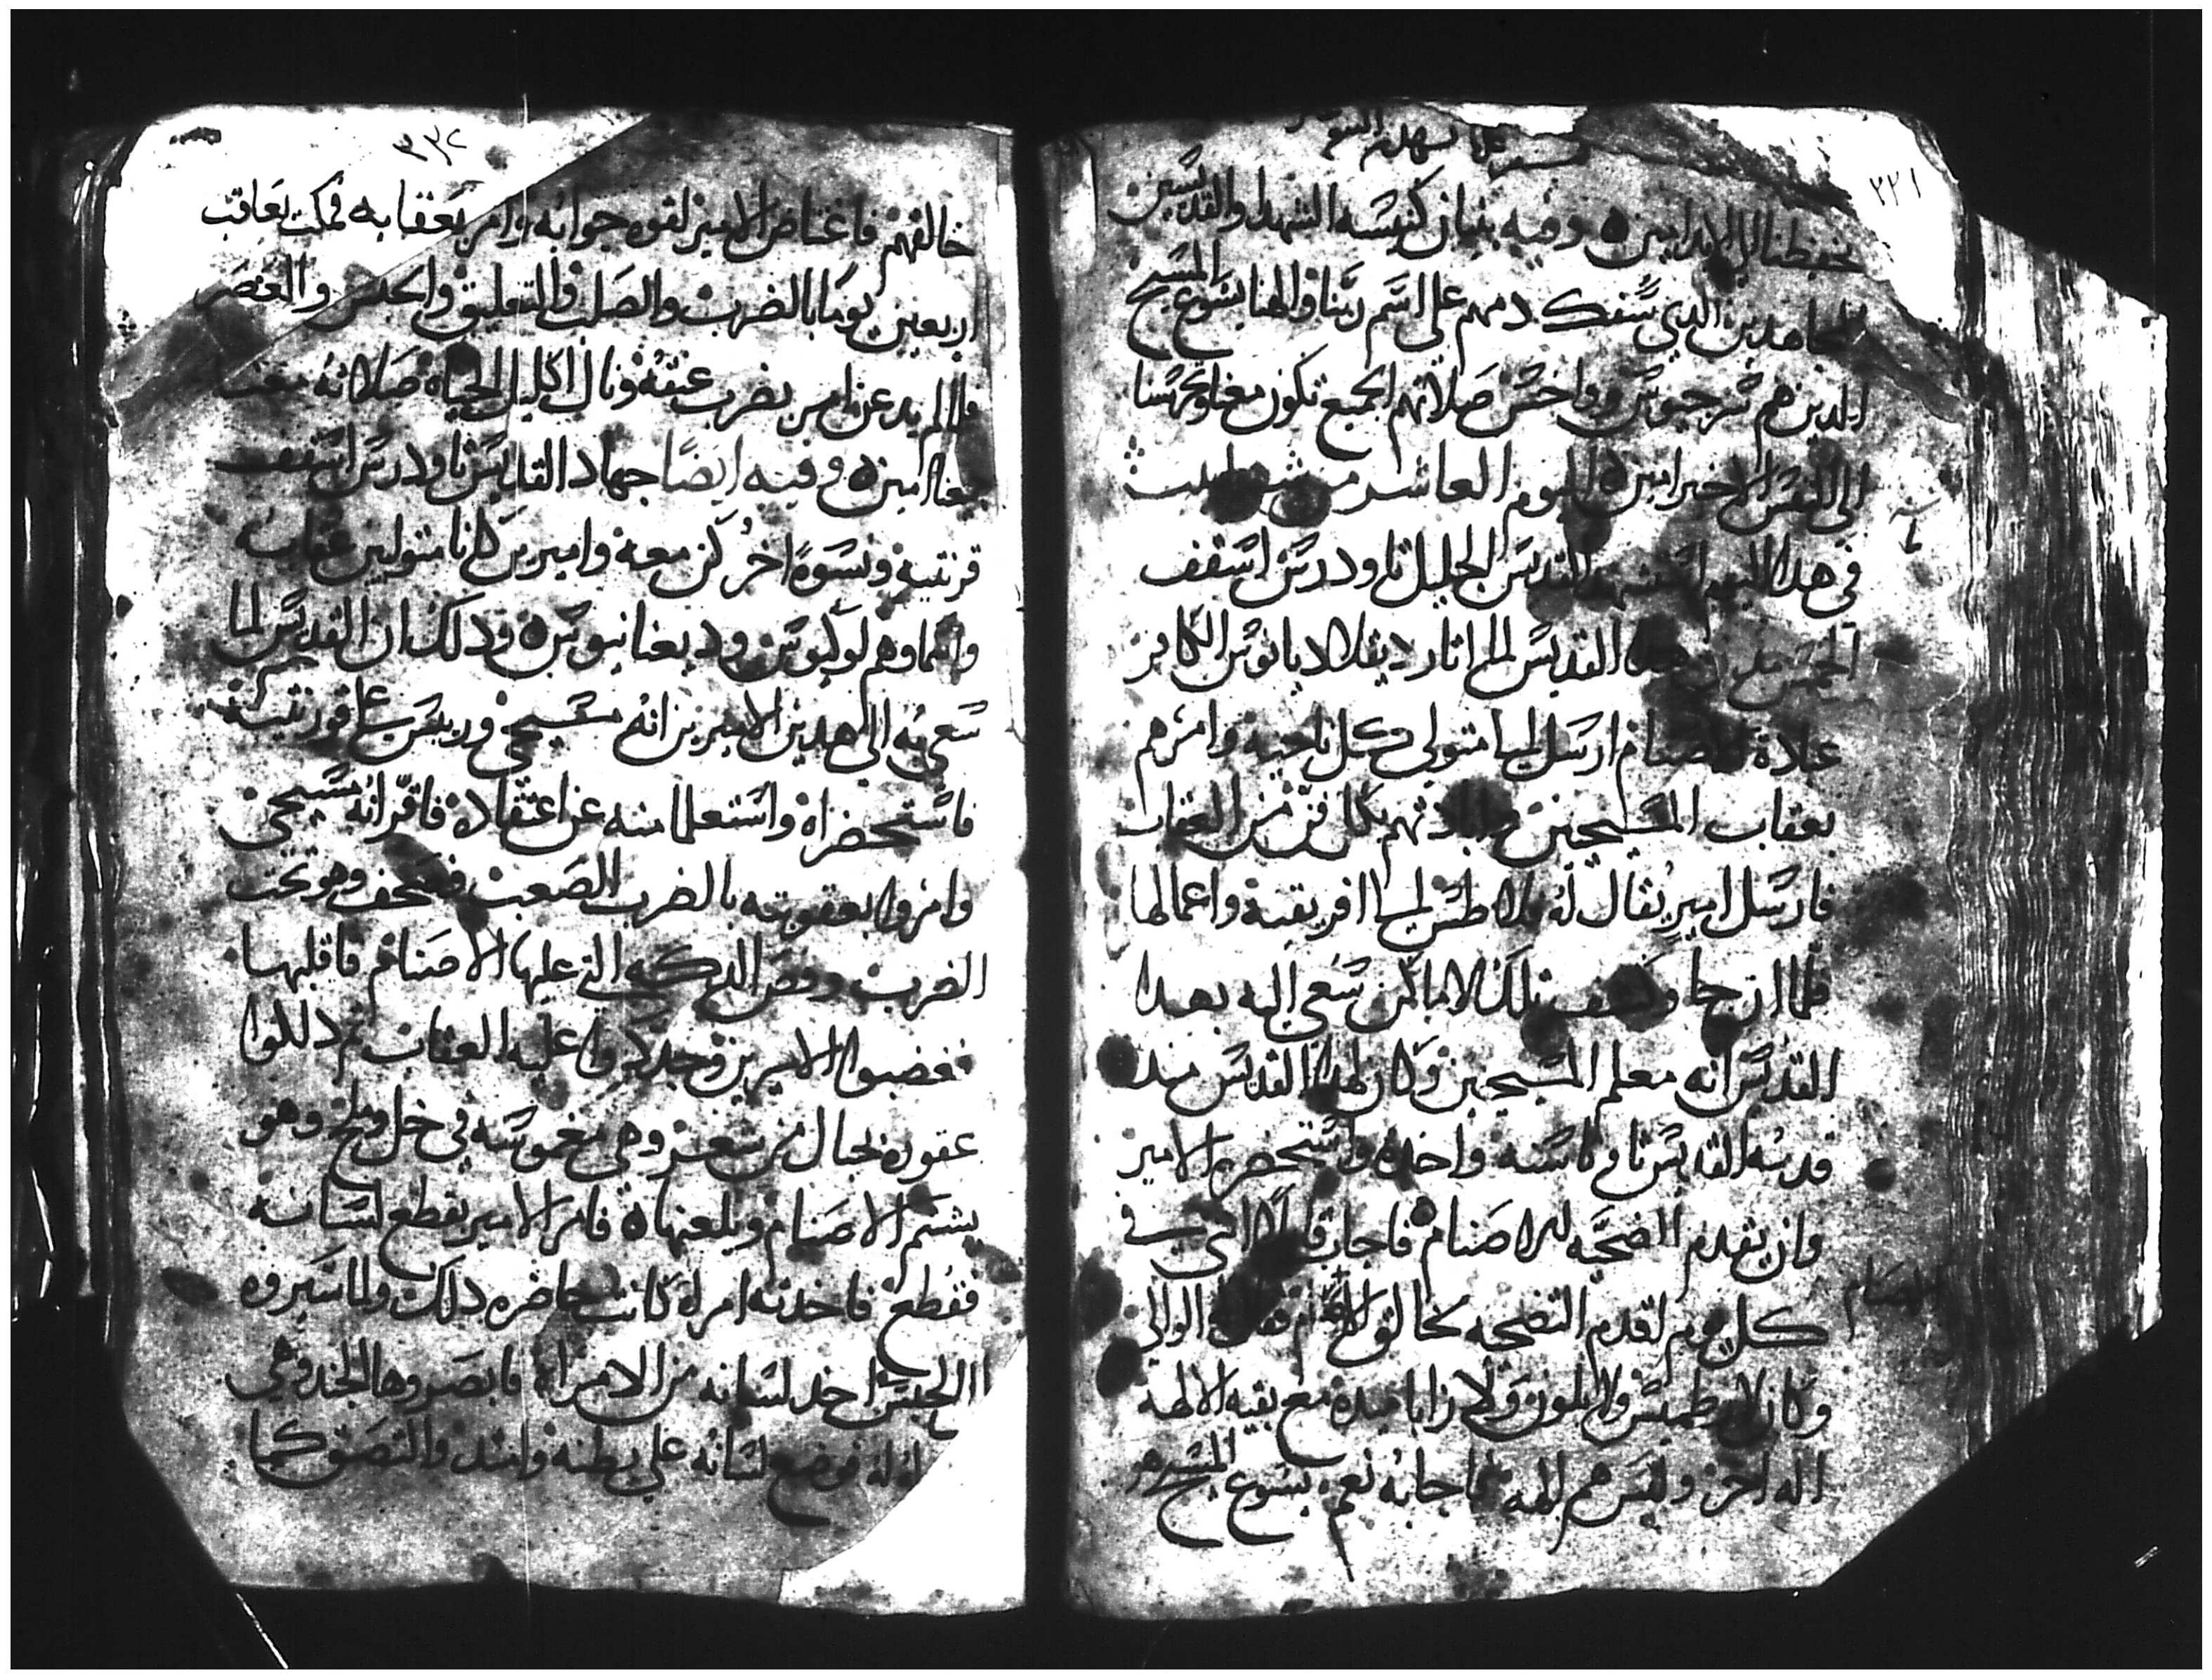 ٢٢١
يحفظنا الى الابد امين ٥ وفيه بنيان كنيسه الشهدا والقديسين
المجاهدين الدي سفك دمهم على اسم ربنا والهنا يسوع المسيح
الدين هم سرجيوس وواخس صلاتهم الجميع تكون معنا وتحرسنا
الى النفس الاخير امين ٥ اليوم العاشر من
في هدا اليوم استشهد القديس الجليل تاودرس اسقف
الخمس مدن هدا القديس لما اتار ديقلاديانوس الكافر
عبادة الاصنام ارسل الى متولى كل ناحية وامرهم
بعقاب المسيحيين وابادتهم بكل فن من العقاب
فارسل امير يقال له بلاطس الى افريقية واعمالها
فلما ان جا وكشف تلك الاماكن سعى اليه بهدا
القديس انه معلم المسيحيين وكان لهدا القديس مند
قدمه القديس تاوناسته واخده واستحضره الامير
وان يقدم الضحيه للاصنام فاجاب قايلا انى في
كل يوم اقدم التضحيه لخالق الاصنام فقال له الوالى
الاصنام
وكان لارطميس ولابلون ولازاباميده مع بقيه الالهه
اله اخر وليس هم الهه فاجابه نعم يسوع المسيح هو
٢٢٢
خالقهم فاغتاض الامير لقوه جوابه وامر بعقابه فمكت يعاقب
اربعين يوما بالضرب والصلب والتعليق والحبس والعصر
فلما لم يدعن امر بضرب عنقه ونال اكليل الحياه صلاته معنا
معنا امين ٥ وفيه ايضًا جهاد القديس تاودرس اسقف
قرنتيه ونسوة اخر كن معه واميرين كانا متوليين عقابه
وهم لوكيوس وديغنانيوس ٥ ودلك ان القديس لما
سعى به الى هدين الاميرين انه مسيحى وريس على قورنتيه
فاستحضراه واستعلما منه عن اعتقاده فاقر انه مسيحى
وامروا بعقوبته بالضرب الصعب فزحف وهو تحت
الضرب ورفص الدكه التى عليها الاصنام فاقلبها
فغضبوا الاميرين وجددوا عليه العقاب تم دللوا
عقوره بحبال من شعر وهى مغموسه في خل وملح وهو
يشتم الاصنام ويلعنها ٥ فامر الامير بقطع لسانه
فقطع فاخدته امراة كانت حاضره دلك ولما سيروه
الى الحبس اخد لسانه من الامراه فابصروها الجند وهى
له فوضع لسانه على بطنه وانشد والتصق كما